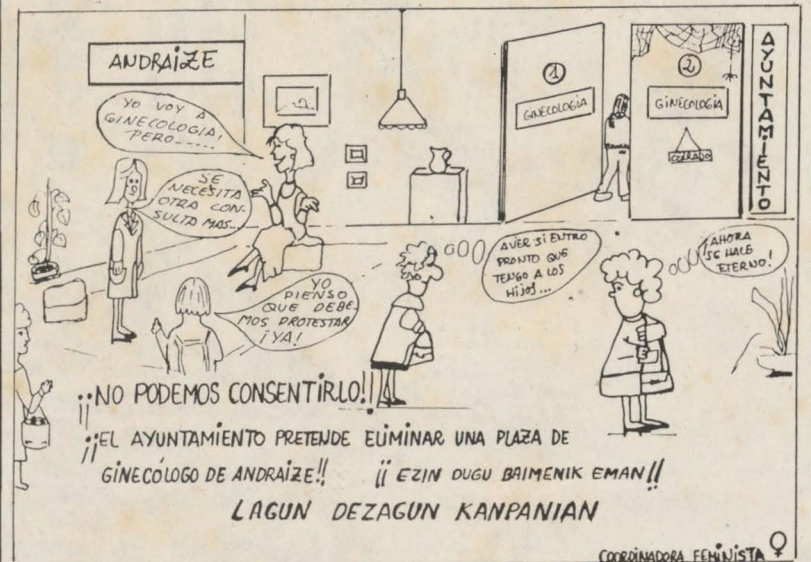 ANDRAIZE
YO VOY A
GINECOLOGIA,
PERO......
SE
NECESITA
OTRA CON-
SULTA MAS...
YO
PIENSO
QUE DEBE-
MOS PROTESTAR
¡YA!
1
GINECOLOGIA
2
GINECOLOGIA
CERRADO
AYUNTAMIENTO
AVER SI ENTRO
PRONTO QUE
TENGO A LOS
HIJOS...
¡AHORA
SE HACE
ETERNO!
¡¡NO PODEMOS CONSENTIRLO!!
¡¡EL AYUNTAMIENTO PRETENDE ELIMINAR UNA PLAZA DE
GINECÓLOGO DE ANDRAIZE!! ¡¡EZIN DUGU BAIMENIK EMAN!!
LAGUN DEZAGUN KANPANIAN
COORDINADORA FEMINISTA